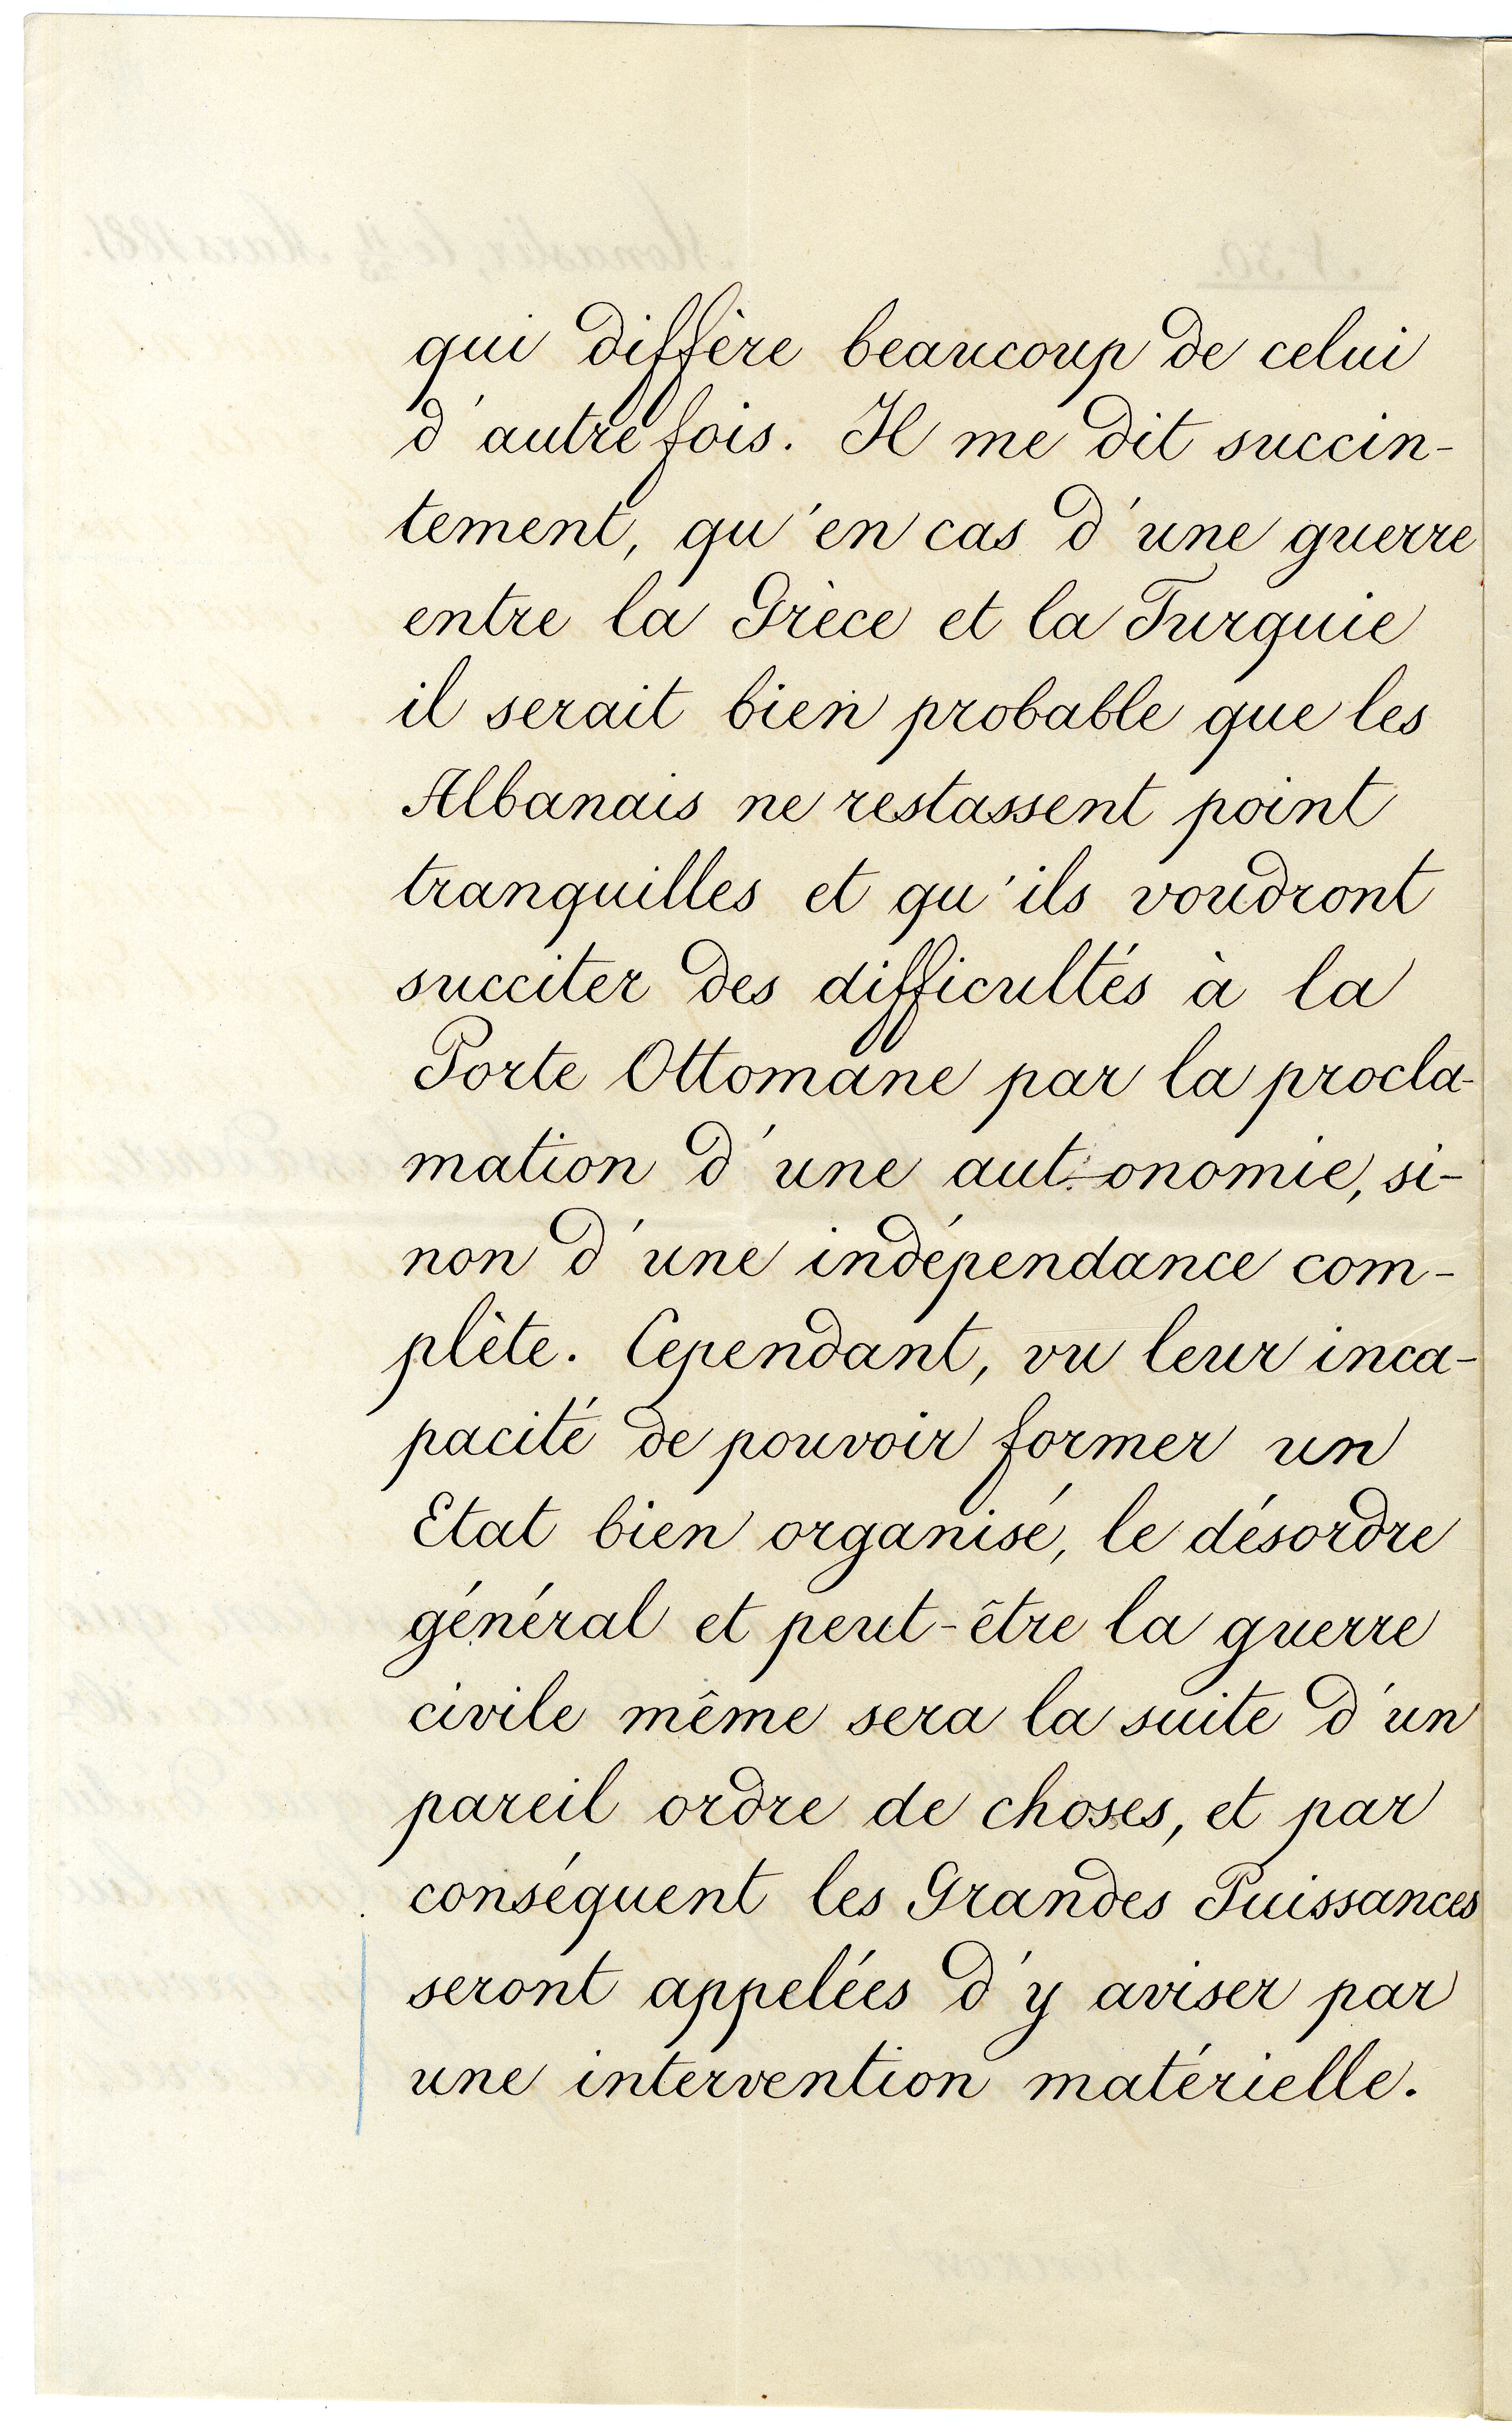 qui diffère beaucoup de celui
d'autrefois. Il me dit succin-
tement, qu'en cas d'une guerre
entre la Grèce et la Turquie
il serait bien probable que les
Albanais ne restassent point
tranquilles et qu'ils voudront
succiter des difficultés à la
Porte Ottomane par la procla-
mation d'une aut-onomie, si-
non d'une indépendance com-
plète. Cependant, vu leur inca-
pacité de pouvoir former un
Etat bien organisé, le désordre
général et peut-être la guerre
civile même sera la suite d'un
pareil ordre de choses, et par
conséquent les Grandes Puissances
seront appelées d'y aviser par
une intervention matérielle.